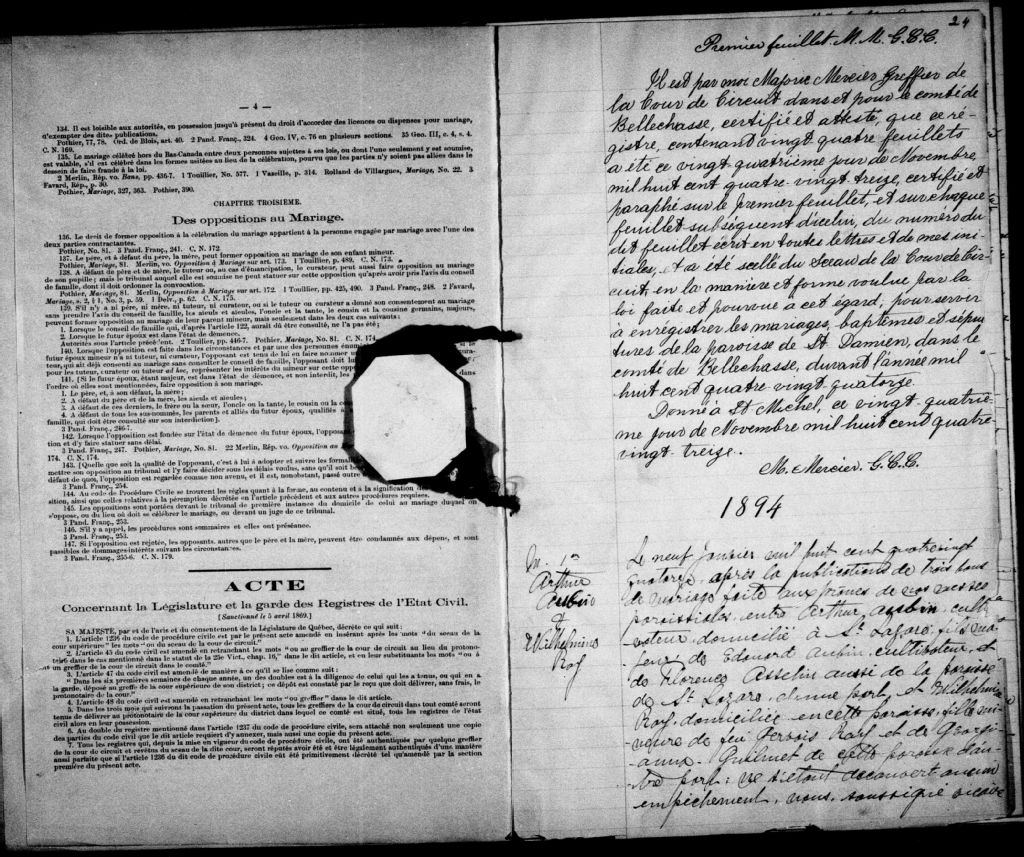 — 4 —
134. Il est loisible aux autorités, en possession jusqu'à présent du droit d'accorder des licences ou dispenses pour mariage,
d'exempter des dites publications.
Pothier, 77, 78. Ord. de Blois, art. 40. 2 Pand. Franç., 324. 4 Geo. IV, c. 76 en plusieurs sections. 35 Geo. III, c. 4, s. 4.
C. N. 169.
135. Le mariage célébré hors du Bas-Canada entre deux personnes sujettes à ses lois, ou dont l'une seulement y est soumise,
est valable, s'il est célébré dans les formes usitées au lieu de la célébration, pourvu que les parties n'y soient pas allées dans le
dessein de faire fraude à la loi.
2 Merlin, Rép. vo. Bans, pp. 436-7. 1 Touillier, No. 577. 1 Vazeille, p. 314. Rolland de Villargues, Mariage, No. 22. 3
Favard, Rép., p. 30.
Pothier, Mariage, 327, 363. Pothier, 390.
CHAPITRE TROISIÈME.
Des oppositions au Mariage.
136. Le droit de former opposition à la célébration du mariage appartient à la personne engagée par mariage avec l'une des
deux parties contractantes.
Pothier, No. 81. 3 Pand. Franç., 241. C. N. 172.
137. Le père, et à défaut du père, la mère, peut former opposition au mariage de son enfant mineur.
Pothier, Mariage, 81. Merlin, vo. Opposition à Mariage sur art. 173. 1 Touillier, p. 489. C. N. 173.
138. A défaut de père et de mère, le tuteur ou, au cas d'émancipation, le curateur, peut aussi faire opposition au mariage
de son pupille; mais le tribunal auquel elle est soumise ne peut statuer sur cette opposition qu'après avoir pris l'avis du conseil
de famille, dont il doit ordonner la convocation.
Pothier, Mariage, 81. Merlin, Opposition à Mariage sur art. 172. 1 Touillier, pp. 425, 490. 3 Pand. Franç., 248. 2 Favard,
Mariage, s. 2, § 1, No. 3, p. 59. 1 Delv., p. 62. C. N. 175.
139. S'il n'y a ni père, ni mère, ni tuteur, ni curateur, ou si le tuteur ou curateur a donné son consentement au mariage
sans prendre l'avis du conseil de famille, les aïeuls et aïeules, l'oncle et la tante, le cousin et la cousine germains, majeurs,
peuvent former opposition au mariage de leur parent mineur, mais seulement dans les deux cas suivants:
1. Lorsque le conseil de famille qui, d'après l'article 122, aurait dû être consulté, ne l'a pas été;
2. Lorsque le futur époux est dans l'état de démence.
Autorités sous l'article précédent. 2 Touillier, pp. 446-7. Pothier, Mariage, No. 81. C. N. 174.
140. Lorsque l'opposition est faite dans les circonstances et par une des personnes
futur époux mineur n'a ni tuteur, ni curateur, l'opposant est tenu de lui en faire nommer un
teur, qui ait déjà consenti au mariage sans consulter le conseil de famille, l'opposant doit
pour les tuteur, curateur ou tuteur ad hoc, représenter les intérêts du mineur sur cette
141. [Si le futur époux, étant majeur, est dans l'état de démence, et non interdit, les
l'ordre où elles sont mentionnées, faire opposition à son mariage.
1. Le père, et, à son défaut, la mère;
2. A défaut du père et de la mère, les aïeuls et aïeules;
3. A défaut de ces derniers, le frère ou la sœur, l'oncle ou la tante, le cousin ou la
4. A défaut de tous les sus-nommés, les parents et alliés du futur époux, qualifiés
famille, qui doit être consulté sur son interdiction].
3 Pand. Franç., 246-7.
142. Lorsque l'opposition est fondée sur l'état de démence du futur époux,
tion et d'y faire statuer sans délai.
3 Pand. Franç., 247. Pothier, Mariage, No. 81. 22 Merlin, Rép. vo. Opposition au
174. C. N. 174.
143. [Quelque soit la qualité de l'opposant, c'est à lui à adopter et suivre les
mettre son opposition au tribunal et l'y faire décider sous les délais voulus, sans qu'il soit
défaut de quoi, l'opposition est regardée comme non avenue, et il est, nonobstant, passé outre
3 Pand. Franç., 254.
144. Au code de Procédure Civile se trouvent les règles quant à la forme, au contenu et à la signification
sition, ainsi que celles relatives à la péremption décrétée en l'article précédent et aux autres procédures requises.
145. Les oppositions sont portées devant le tribunal de première instance du domicile de celui au mariage duquel on
s'oppose, ou du lieu où doit se célébrer le mariage, ou devant un juge de ce tribunal.
3 Pand. Franç., 253.
146. S'il y a appel, les procédures sont sommaires et elles ont préséance.
3 Pand. Franç., 253.
147. Si l'opposition est rejetée, les opposants, autres que le père et la mère, peuvent être condamnés aux dépens, et sont
passibles de dommages-intérêts suivant les circonstances.
3 Pand. Franç., 255-6. C. N. 179.
ACTE
Concernant la Législature et la garde des Registres de l'Etat Civil.
[Sanctionné le 5 avril 1869.]
SA MAJESTE, par et de l'avis et du consentement de la Législature de Québec, décrète ce qui suit:
1. L'article 1236 du code de procédure civile est par le présent acte amendé en insérant après les mots "du sceau de la
cour supérieure" les mots "ou du sceau de la cour de circuit."
2. L'article 45 du code civil est amendé en retranchant les mots "ou au greffier de la cour de circuit au lieu du protono-
taire dans le cas mentionné dans le statut de la 25e Vict., chap. 16," dans le dit article, et en leur substituant les mots "ou à
un greffier de la cour de circuit dans le comté."
3. L'article 47 du code civil est amendé à ce qu'il se lise comme suit:
"Dans les six premières semaines de chaque année, un des doubles est à la diligence de celui qui les a tenus, ou qui en a
la garde, déposé au greffe de la cour supérieure de son district; ce dépôt est constaté par le reçu que doit délivrer, sans frais, le
protonotaire de la cour."
4. L'article 48 du code civil est amendé en retranchant les mots "ou greffier" dans le dit article.
5. Dans les trois mois qui suivront la passation du présent acte, tous les greffiers de la cour de circuit dans tout comté seront
tenus de délivrer au protonotaire de la cour supérieure du district dans lequel ce comté est situé, tous les registres de l'état
civil alors en leur possession.
6. Au double du registre mentionné dans l'article 1237 du code de procédure civile, sera attaché non seulement une copie
des parties du code civil que le dit article requiert d'y annexer, mais aussi une copie du présent acte.
7. Tous les registres qui, depuis la mise en vigueur du code de procédure civile, ont été authentiqués par quelque greffier
de la cour de circuit et revêtus du sceau de la dite cour, seront réputés avoir été et être légalement authentiqués d'une manière
aussi parfaite que si l'article 1236 du dit code de procédure civile eût été primitivement décrété tel qu'amendé par la section
première du présent acte.
24
Premier feuillet. M. M. G. C. C.
Il est par moi Majorie Mercier Greffier de
la Cour de Circuit dans et pour le comté de
Bellechasse, certifié et attesté, que ce ré-
gistre, contenant vingt quatre feuillets
a été ce vingt quatrième jour de Novembre
mil huit cent quatre-vingt treize, certifié et
paraphé sur le premier feuillet, et sur chaque
feuillet subséquent d'icelui, du numéro du
dit feuillet écrit en toutes lettres et de mes ini-
tiales, et a été scellé du Sceau de la Cour de Cir-
cuit en la manière et forme voulue par la
loi faite et pourvue à cet égard, pour servir
à enregistrer les mariages, baptêmes et sépul-
tures de la paroisse de St Damien, dans le
comté de Bellechasse, durant l'année mil
huit cent quatre-vingt quatorze.
Donné à St Michel, ce vingt quatriè-
me jour de Novembre mil huit cent quatre
vingt treize.
M. Mercier. G. C. C.
1894
M. 1e
Arthur
Aubin
&
Wilhelmine
Roy
Le neuf Janvier mil huit cent quatrevingt
quatorze, après la publications de trois bans
de mariage faite aux prônes de nos messes
paroissiales, entre Arthur Aubin, culti-
vateur domicilié à St Lazare, fils ma-
jeur de Edouard Aubin, cultivateur, et
de Florence Asselin aussi de la paroisse
de St Lazare, d'une part, et Wilhelmine
Roy, domiciliée en cette paroisse, fille mi-
neure de feu Gervais Roy et de Georgi-
anna Guilmet de cette paroisse d'au-
tre part; ne s'étant découvert aucun
empêchement, nous, soussigné vicaire